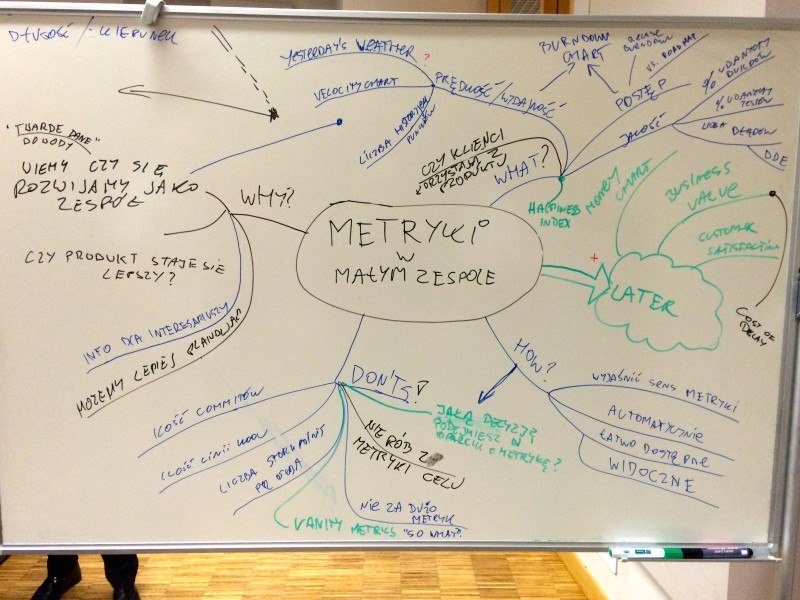 DŁUGOŚĆ / KIERUNEK
"TWARDE DANE"
DOWODY
WIEMY CZY SIĘ
ROZWIJAMY JAKO
ZESPÓŁ
WHY?
CZY PRODUKT STAJE SIĘ
LEPSZY?
INFO DLA INTERESARIUSZY
MOŻEMY LEPIEJ PLANOWAĆ
METRYKI
W
MAŁYM ZESPOLE
YESTERDAY'S WEATHER ?
VELOCITY CHART
LICZBA HISTORYJEK
PRĘDKOŚĆ / WYDAJNOŚĆ
BURNDOWN
CHART
RELEASE
BURNDOWN
VS. ROADMAP
POSTĘP
JAKOŚĆ
% UDANYCH
BUILDÓW
% UDANYCH
TESTÓW
LICZBA BŁĘDÓW
DDE
WHAT?
CZY KLIENCI
KORZYSTAJĄ Z
PRODUKTU
HAPPINESS
INDEX
MONEY
CHART
BUSINESS
VALUE
CUSTOMER
SATISFACTION
+
LATER
COST OF
DELAY
HOW?
WYJAŚNIĆ SENS METRYKI
AUTOMATYCZNIE
ŁATWO DOSTĘPNE
WIDOCZNE
JAKĄ DECYZJĘ
PODEJMIESZ W
OPARCIU O METRYKĘ?
DON'TS!
ILOŚĆ COMMITÓW
ILOŚĆ LINII KODU
LICZBA STORY POINT
PER OSOBA
NIE RÓB Z
METRYKI CELU
NIE ZA DUŻO
METRYK
VANITY METRICS "SO WHAT?"